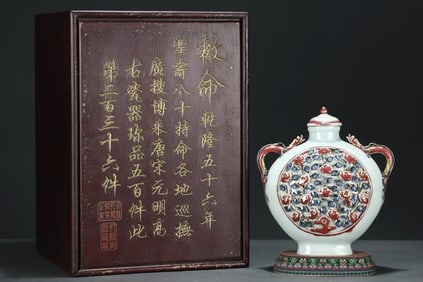 敕命 乾隆五十六年
聖壽八十特命各地巡撫
廣搜博采唐宋元明高
古瓷器珍品五百件此
第二百三十六件